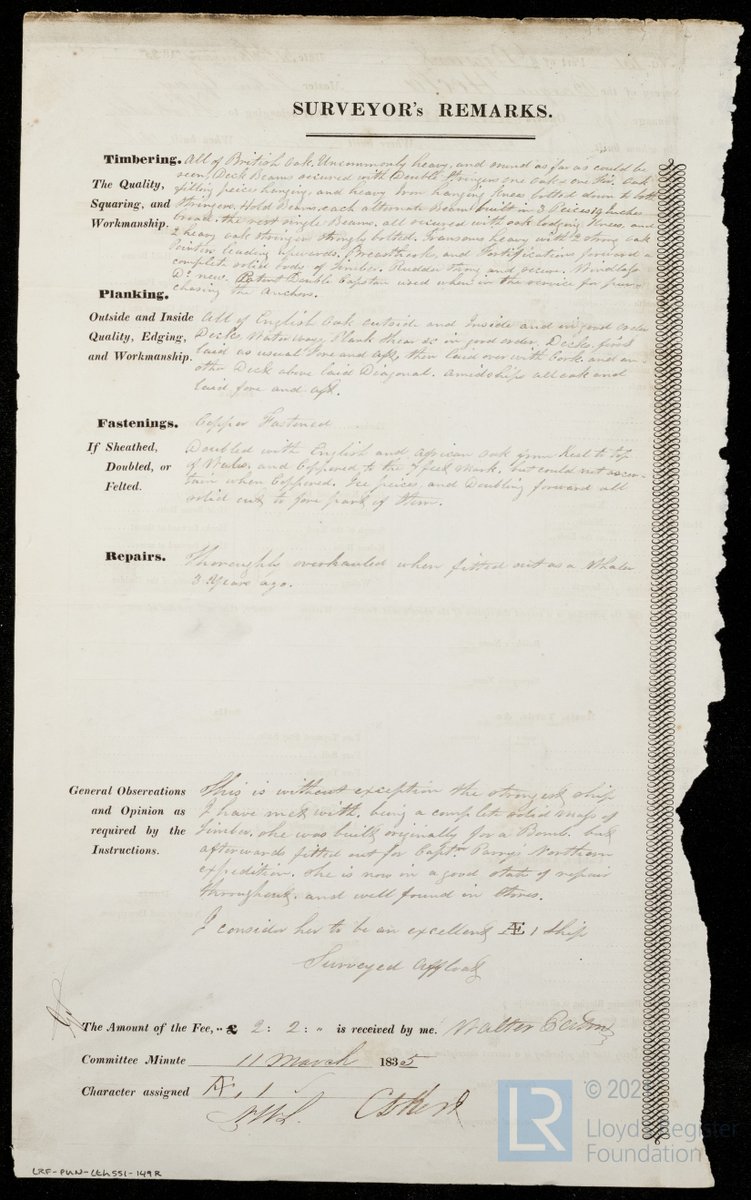 SURVEYOR's REMARKS.
Timbering. All of British Oak. Uncommonly heavy, and sound as far as could be
The Quality, seen, Deck Beams secured with Double Stringers one oak & one Fir. Oak
filling peices hanging, and heavy Iron hanging Knees bolted down to both
Squaring, and Stringers. Hold Beams, each alternate Beam built in 3 Peices 19 Inches
Workmanship. broad. the rest single Beams, all secured with oak lodging Knees, and
2 heavy oak stringers strongly bolted. Transoms heavy with 2 strong oak
Pointers leading upwards. Breasthooks, and Fortifications forward a
complete solid body of Timber. Rudder strong and secure. Windlass
Do. new. Patent Double Capstan used when in the service for pur-
chasing the anchors.
Planking.
Outside and Inside All of English Oak outside and Inside and in good order
Quality, Edging, Decks, Waterways, Plank shear &c in good order. Decks first
and Workmanship. laid as usual Fore and aft, then laid over with Cork and an-
other Deck above laid Diagonal. amidships all oak and
laid fore and aft.
Fastenings. Copper Fastened
If Sheathed, Doubled with English and African Oak from Keel to top
Doubled, or of Wales, and Coppered to the 7 feet mark. but could not ascer-
Felted. tain when Coppered. Ice peices, and Doubling forward all
solid out to fore part of Stem.
Repairs. Thoroughly overhauled when fitted out as a Whaler
3 Years ago.
General Observations This is without exception the strongest ship
and Opinion as I have met with. being a complete solid mass of
required by the Timber, she was built originally for a Bomb. but
Instructions. afterwards fitted out for Captn. Parry's Northern
expedition. she is now in a good state of repair
throughout. and well found in Stores.
I consider her to be an excellent Æ 1 Ship
Surveyed Affloat
The Amount of the Fee, " £ 2 : 2 : " is received by me. Walter
Committee Minute 11 March 1835
Character assigned Æ 1
LRF-PUN-LEW551-149R
LR
© 202
Lloyd's Register
Foundation